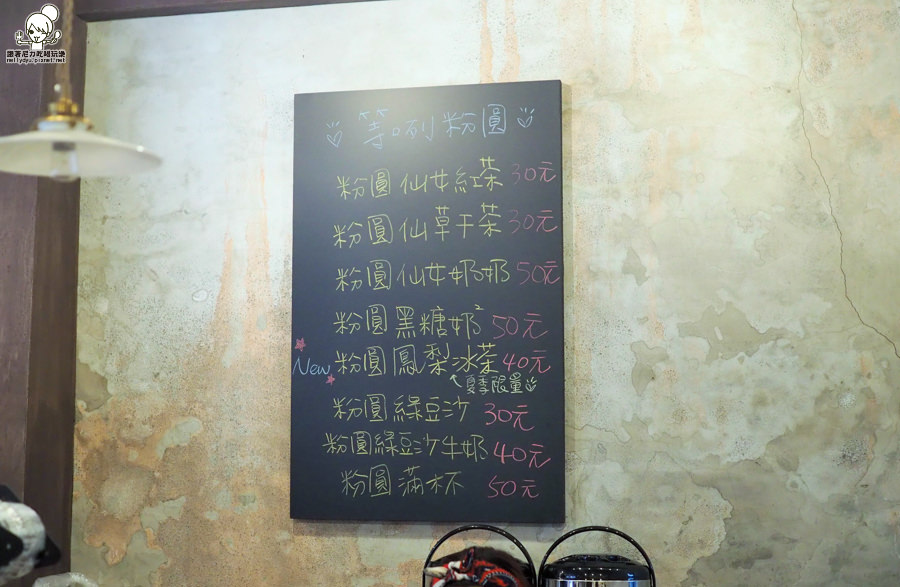 跟著尼力吃喝玩樂
nellydyu.pixnet.net
等咧粉圓
粉圓仙女紅茶 30元
粉圓仙草干茶 30元
粉圓仙女奶奶 50元
粉圓黑糖奶² 50元
New 粉圓鳳梨冰茶 40元
夏季限量
粉圓綠豆沙 30元
粉圓綠豆沙牛奶 40元
粉圓滿杯 50元